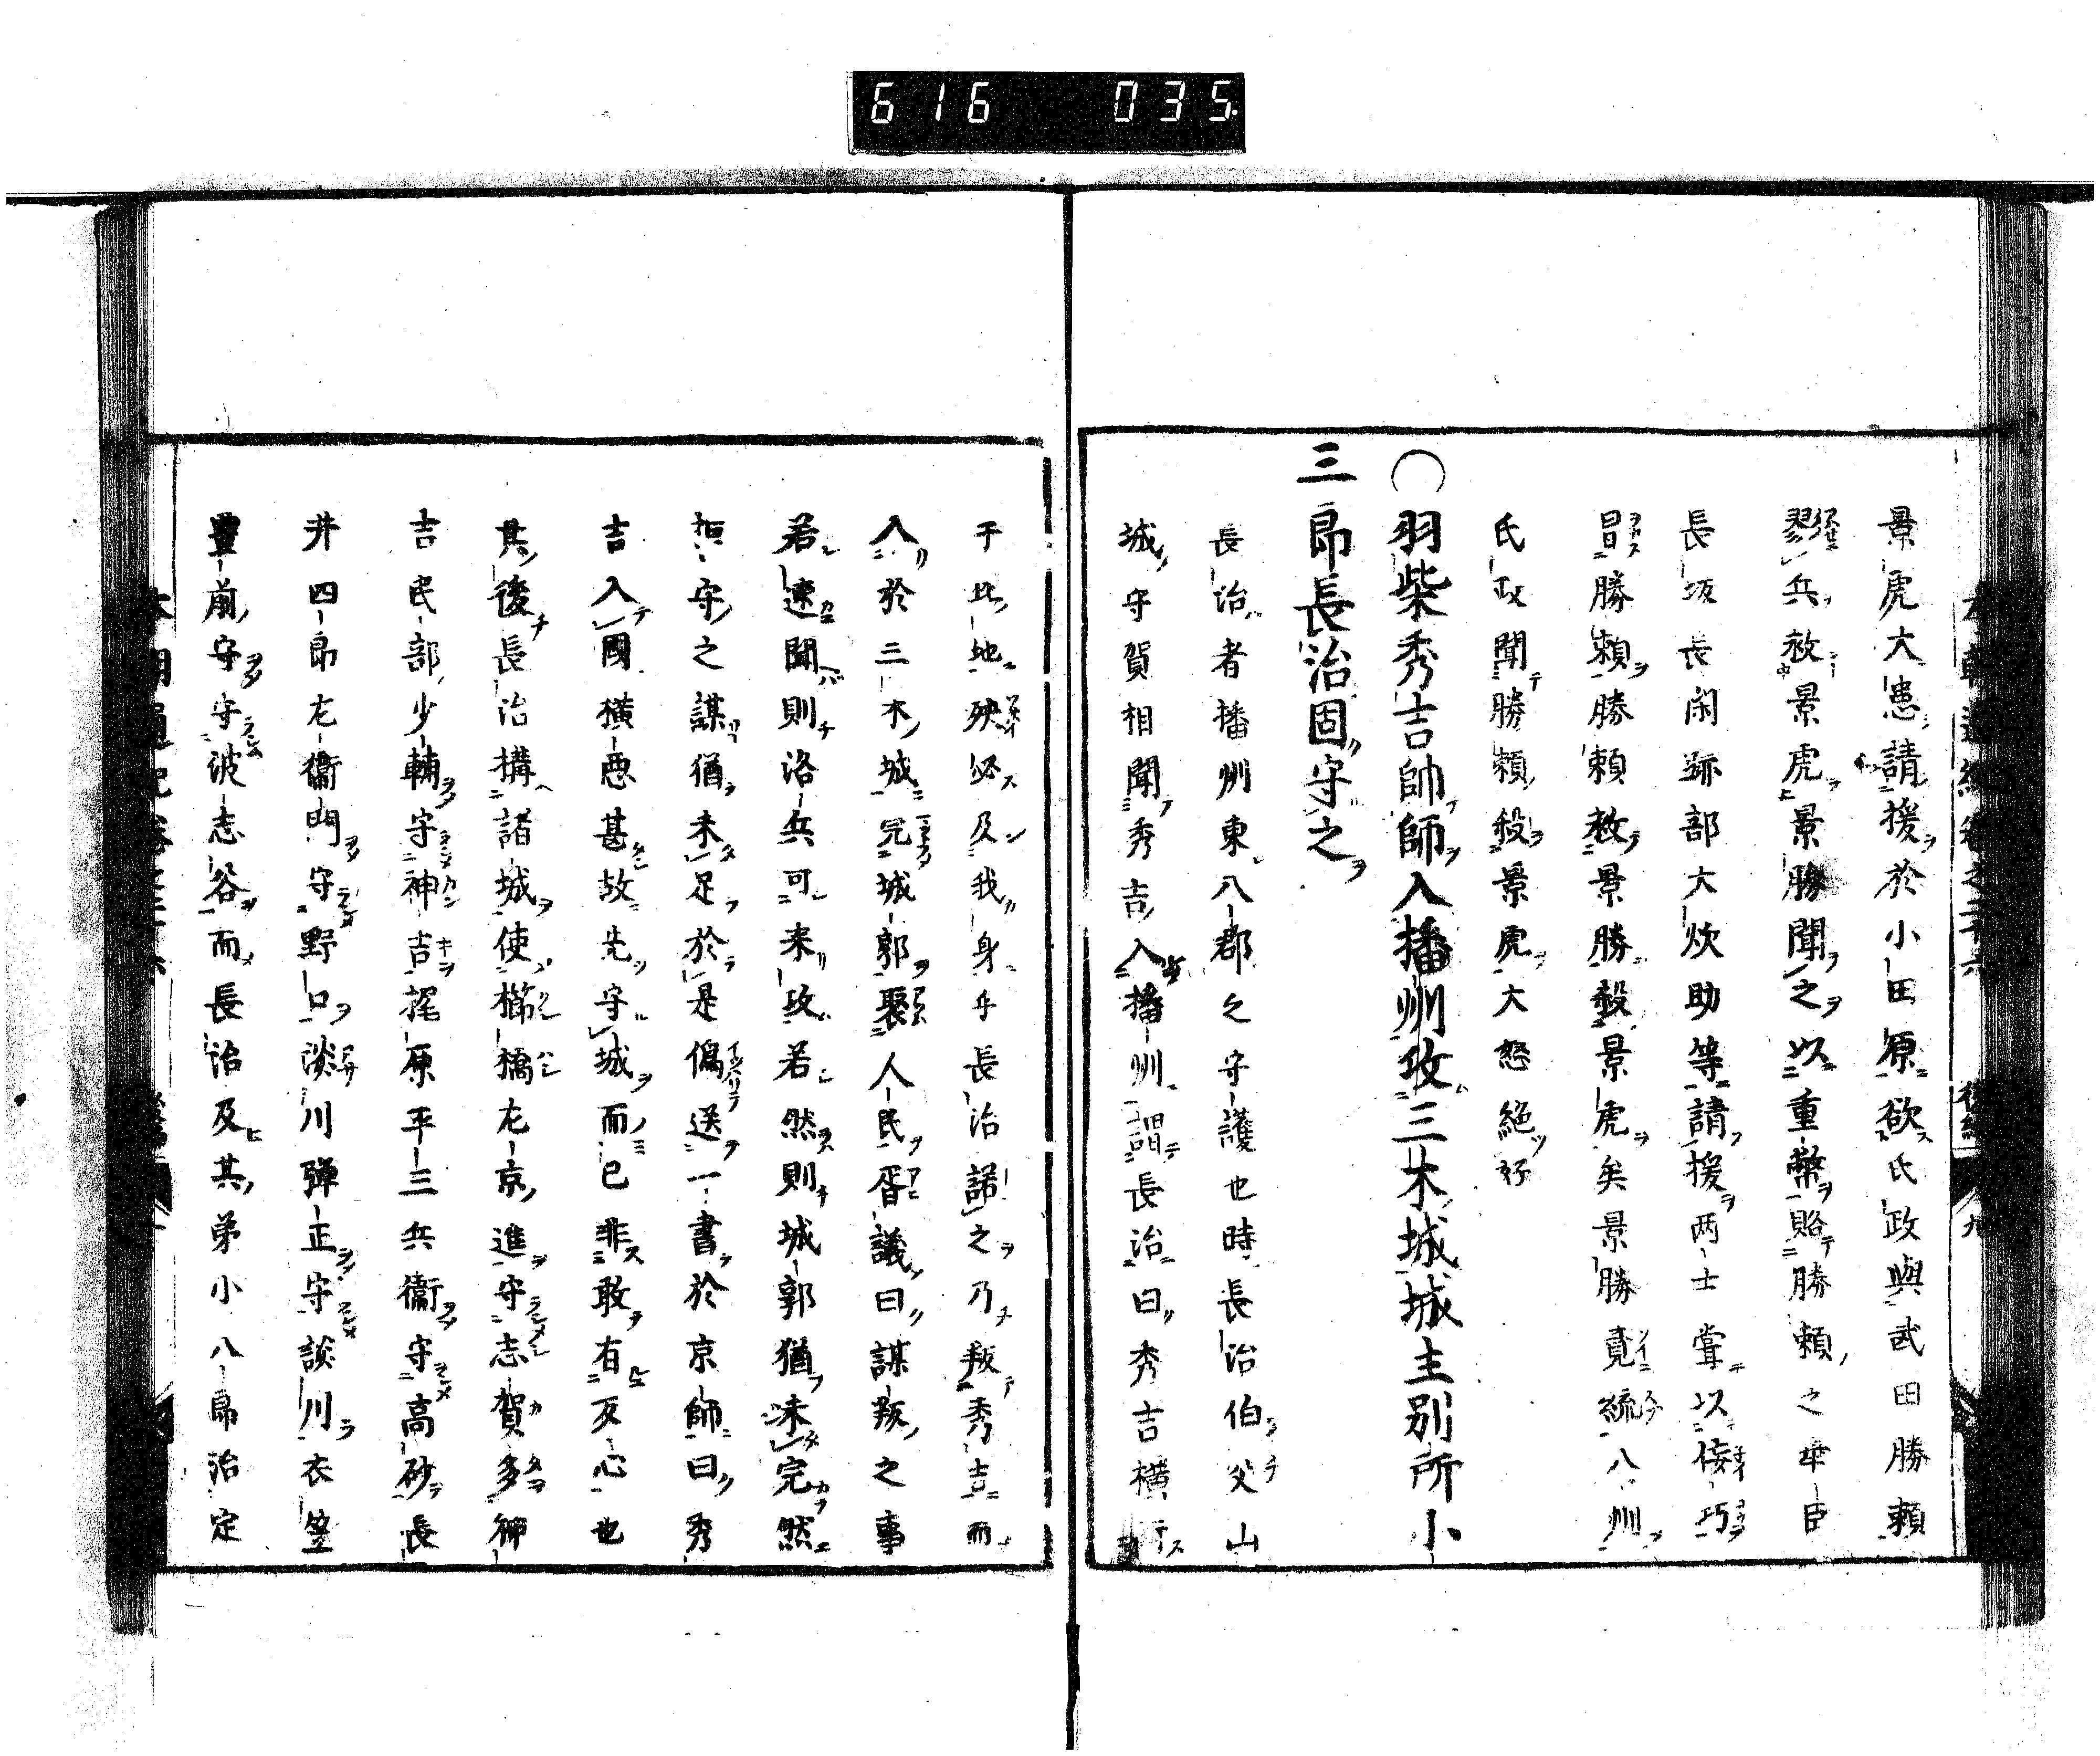 616 035
景虎大患請援於小田原欲氏政與武田勝頼
勠兵救景虎景勝聞之以重幣賂勝頼之華臣
長坂長閑跡部大炊助等請援両士嘗以佞巧
冒勝頼勝頼救景勝殺景虎矣景勝竟統八州
氏政聞勝頼殺景虎大怒絶好
○羽柴秀吉帥師入播州攻三木城城主別所小
三郎長治固守之
長治者播州東八郡之守護也時長治伯父山
城守賀相聞秀吉入播州謂長治曰秀吉横行
于此地殃必及我身乎長治諾之乃叛秀吉而
入於三木城完城郭聚人民胥議曰謀叛之事
若速聞則洛兵可来攻若然則城郭猶未完然
拒守之謀猶未足於是偽送一書於京師曰秀
吉入國横悪甚故先守城而已非敢有反心也
其後長治搆諸城使櫛橋左京進守志賀多神
吉民部少輔守神吉梶原平三兵衞守高砂長
井四郎左衞門守野口淡川弾正守談川衣笠
豊前守守波志谷而長治及其弟小八郎治定